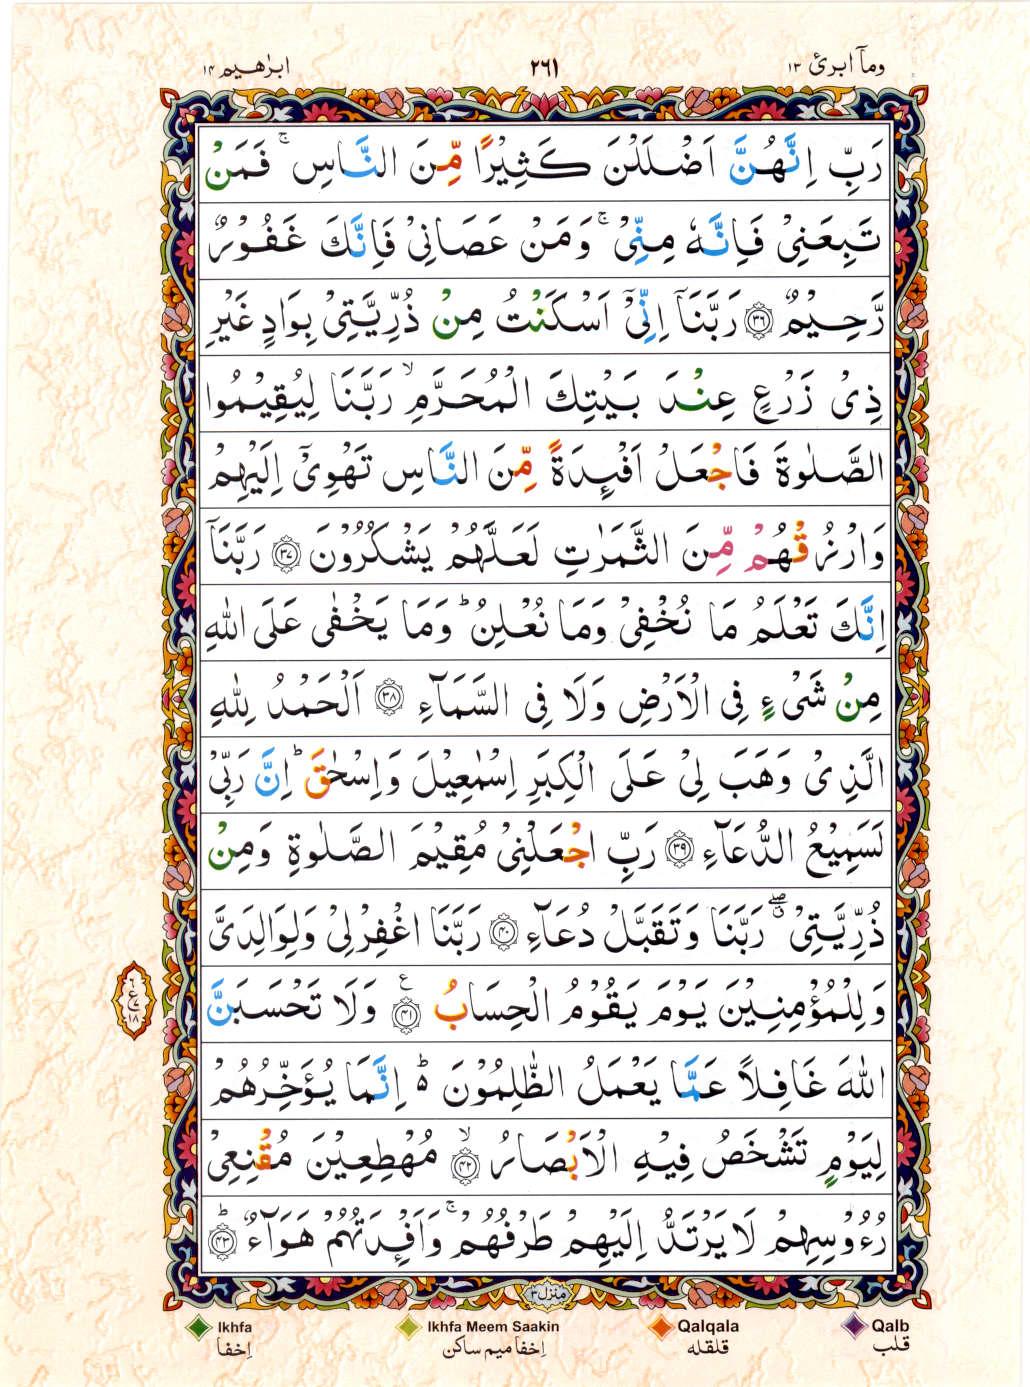 ابرٰهيم ١٤
٢٦١
ومآ ابرئ ١٣
رَبِّ اِنَّهُنَّ اَضْلَلْنَ كَثِيْرًا مِّنَ النَّاسِ ۚ فَمَنْ
تَبِعَنِيْ فَاِنَّهٗ مِنِّيْ ۚ وَمَنْ عَصَانِيْ فَاِنَّكَ غَفُوْرٌ
رَّحِيْمٌ ﴿٣٦﴾ رَبَّنَآ اِنِّيْٓ اَسْكَنْتُ مِنْ ذُرِّيَّتِيْ بِوَادٍ غَيْرِ
ذِيْ زَرْعٍ عِنْدَ بَيْتِكَ الْمُحَرَّمِ ۙ رَبَّنَا لِيُقِيْمُوا
الصَّلٰوةَ فَاجْعَلْ اَفْئِدَةً مِّنَ النَّاسِ تَهْوِيْٓ اِلَيْهِمْ
وَارْزُقْهُمْ مِّنَ الثَّمَرٰتِ لَعَلَّهُمْ يَشْكُرُوْنَ ﴿٣٧﴾ رَبَّنَآ
اِنَّكَ تَعْلَمُ مَا نُخْفِيْ وَمَا نُعْلِنُ ؕ وَمَا يَخْفٰى عَلَى اللّٰهِ
مِنْ شَيْءٍ فِي الْاَرْضِ وَلَا فِي السَّمَآءِ ﴿٣٨﴾ اَلْحَمْدُ لِلّٰهِ
الَّذِيْ وَهَبَ لِيْ عَلَى الْكِبَرِ اِسْمٰعِيْلَ وَاِسْحٰقَ ؕ اِنَّ رَبِّيْ
لَسَمِيْعُ الدُّعَآءِ ﴿٣٩﴾ رَبِّ اجْعَلْنِيْ مُقِيْمَ الصَّلٰوةِ وَمِنْ
ذُرِّيَّتِيْ ۖ ۗ رَبَّنَا وَتَقَبَّلْ دُعَآءِ ﴿٤٠﴾ رَبَّنَا اغْفِرْ لِيْ وَلِوَالِدَيَّ
وَلِلْمُؤْمِنِيْنَ يَوْمَ يَقُوْمُ الْحِسَابُ ﴿٤١﴾ ع وَلَا تَحْسَبَنَّ
اللّٰهَ غَافِلًا عَمَّا يَعْمَلُ الظّٰلِمُوْنَ ؕ۬ اِنَّمَا يُؤَخِّرُهُمْ
لِيَوْمٍ تَشْخَصُ فِيْهِ الْاَبْصَارُ ﴿٤٢﴾ ۙ مُهْطِعِيْنَ مُقْنِعِيْ
رُءُوْسِهِمْ لَا يَرْتَدُّ اِلَيْهِمْ طَرْفُهُمْ ۚ وَاَفْـِٕدَتُهُمْ هَوَآءٌ ؕ ﴿٤٣﴾
منزل ٣
Ikhfa
Ikhfa Meem Saakin
Qalqala
Qalb
اِخفا
اِخفا میم ساکن
قلقله
قلب